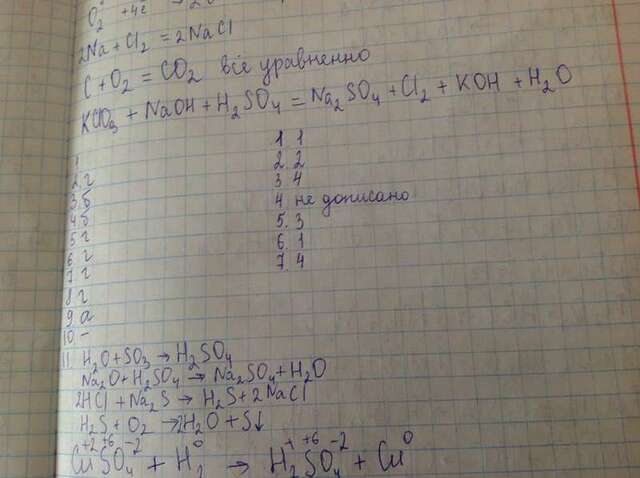 O₂ +4e
2Na + Cl₂ = 2NaCl
C + O₂ = CO₂ всё уравненно
KClO₃ + NaOH + H₂SO₄ = Na₂SO₄ + Cl₂ + KOH + H₂O
1
2 г
3 б
4 б
5 г
6 г
7 г
8 г
9 а
10 -
1 1
2. 2
3 4
4 не дописано
5. 3
6. 1
7. 4
11. H₂O + SO₃ → H₂SO₄
Na₂O + H₂SO₄ → Na₂SO₄ + H₂O
2HCl + Na₂S → H₂S + 2NaCl
H₂S + O₂ → 2H₂O + S↓
+2 +6 -2 0 + +6 -2 0
CuSO₄ + H₂ → H₂SO₄ + Cu